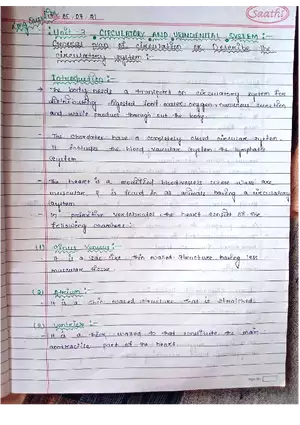 Saathi
Long Question 25.07.21
Unit - 2 CIRCULATORY AND URINOGENITAL SYSTEM :-
General plan of circulation or Describe the
circulatory system :-
Introduction :-
→ The body needs a transport or circulatory system for
distributing digested food water, oxygen function
and waste product through out the body.
- The chordates have a completely closed circular system
It includes the blood vascular system the lymphatic
system.
- The heart is a modified bloodvessels whose walls are
muscular & is found in all animals having a circulatory
system
- In primitive vertebrates the heart consist of the
following chambers :-
(1) Sinus Venosus :-
- It is a sac like thin walled structure having less
muscular tissue.
(2) Atrium :-
- It is a thin walled structure that is stretched.
(3) Ventricle :-
- It is a thick walled to that constitute the main
contractile part of the heart.